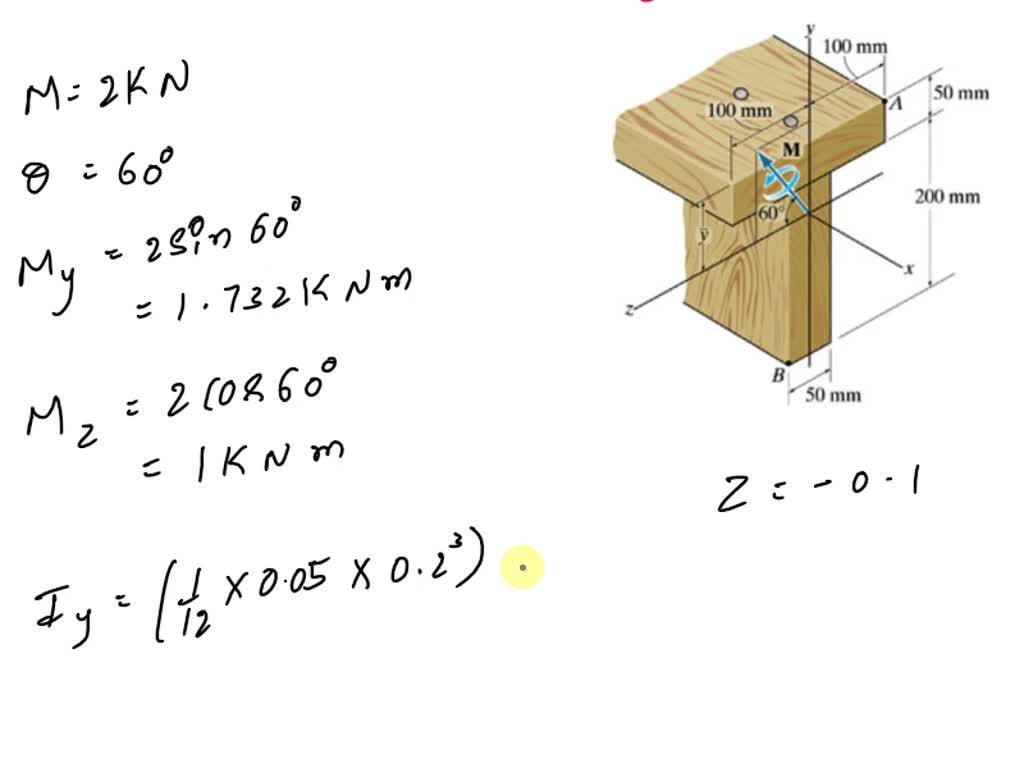 M = 2 K N
θ = 60°
My = 2 sin 60°
= 1.732 K N m
Mz = 2 cos 60°
= 1 K N m
Iy = (1/12 × 0.05 × 0.2³)
y
100 mm
A
50 mm
100 mm
M
200 mm
60°
ȳ
x
z
B
50 mm
Z = - 0.1